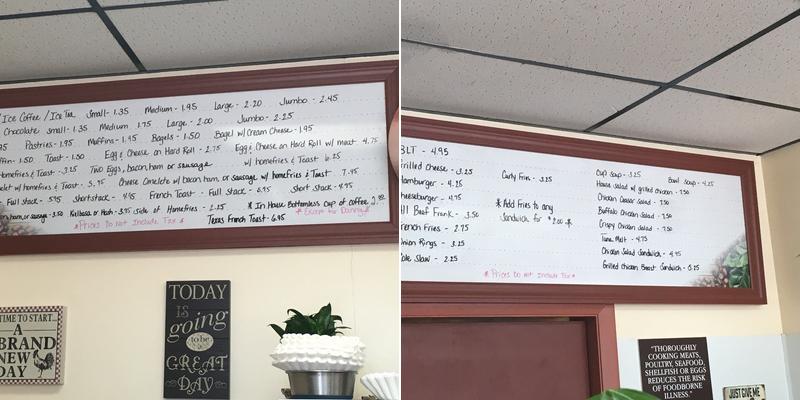 Ice Coffee / Ice Tea Small - 1.35 Medium - 1.95 Large - 2.20 Jumbo - 2.45
Chocolate small - 1.35 Medium 1.75 Large - 2.00 Jumbo - 2.25
Pastries - 1.95 Muffins - 1.95 Bagels - 1.50 Bagel w/ Cream Cheese - 1.95
1.50 Toast - 1.50 Egg & Cheese on Hard Roll - 2.75 Egg & Cheese on Hard Roll w/ meat 4.75
Homefries & Toast - 3.25 Two Eggs, bacon, ham or sausage w/ homefries & Toast 6.25
w/ homefries & Toast - 5.95 Cheese Omelete w/ bacon, ham, or sausage w/ homefries & Toast 7.95
Full stack - 5.95 Shortstack - 4.95 French Toast - Full stack - 6.95 Short Stack - 4.95
ham, or sausage - 3.50 Kielbasa or Hash - 3.95 Side of Homefries - 2.25 * In House Bottomless Cup of coffee
*Prices Do Not Include Tax * Texas French Toast - 6.95 * Except for Danny *
TIME TO START...
A
BRAND
NEW
DAY
TODAY
IS
going
to be
a
GREAT
DAY
BLT - 4.95
Grilled Cheese - 3.25
Hamburger - 4.25
Cheeseburger - 4.75
All Beef Frank - 3.50
French Fries - 2.75
Onion Rings - 3.25
Cole Slaw - 2.25
Curly Fries - 3.25
* Add Fries to any
Sandwich for $2.00 *
* Prices Do Not Include Tax *
Cup Soup - 3.25 Bowl Soup - 4.25
House Salad w/ grilled chicken - 7.50
Chicken Caesar Salad - 7.50
Buffalo Chicken Salad - 7.50
Crispy Chicken Salad - 7.50
Tuna Melt - 4.75
Chicken Salad Sandwich - 4.95
Grilled Chicken Breast Sandwich - 5.25
"THOROUGHLY
COOKING MEATS,
POULTRY, SEAFOOD,
SHELLFISH OR EGGS
REDUCES THE RISK
OF FOODBORNE
ILLNESS."
JUST GIVE ME